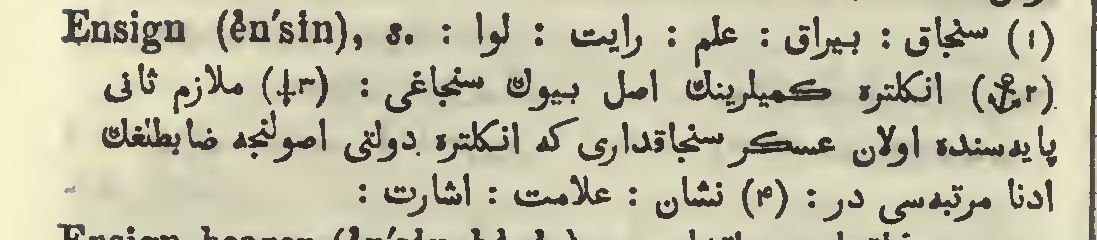 Ensign (ĕn′sĭn), s. (١) سنجاق : بیراق : علم : رایت : لوا :
(⚓٢) انکلتره کمیلرینڭ اصل بیوك سنجاغی : (⸸٣) ملازم ثانی
پایه‌سنده اولان عسکر سنجاقداری که انکلتره دولتی اصولنجه ضابطلغڭ
ادنا مرتبه‌سی در : (۴) نشان : علامت : اشارت :